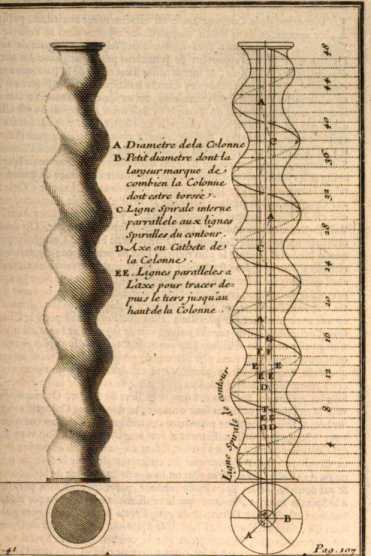 A Diamétre dela Colonne
B Petit diametre dont la
largeur marque de
combien la Colonne
doit estre torsée.
C Ligne Spirale interne
parrallele aux lignes
Spiralles du contour.
D Axe ou Cathete de
la Colonne.
EE. Lignes paralleles a
L'axe pour tracer de=
puis le tiers jusqu'au
haut de la Colonne.
48
44
40
36
32
28
24
20
16
12
8
4
A
C
A
C
A
C
F F
E E
E E
D
E E
D D
Ligne Spirale de contour
A
B
41
Pag. 107